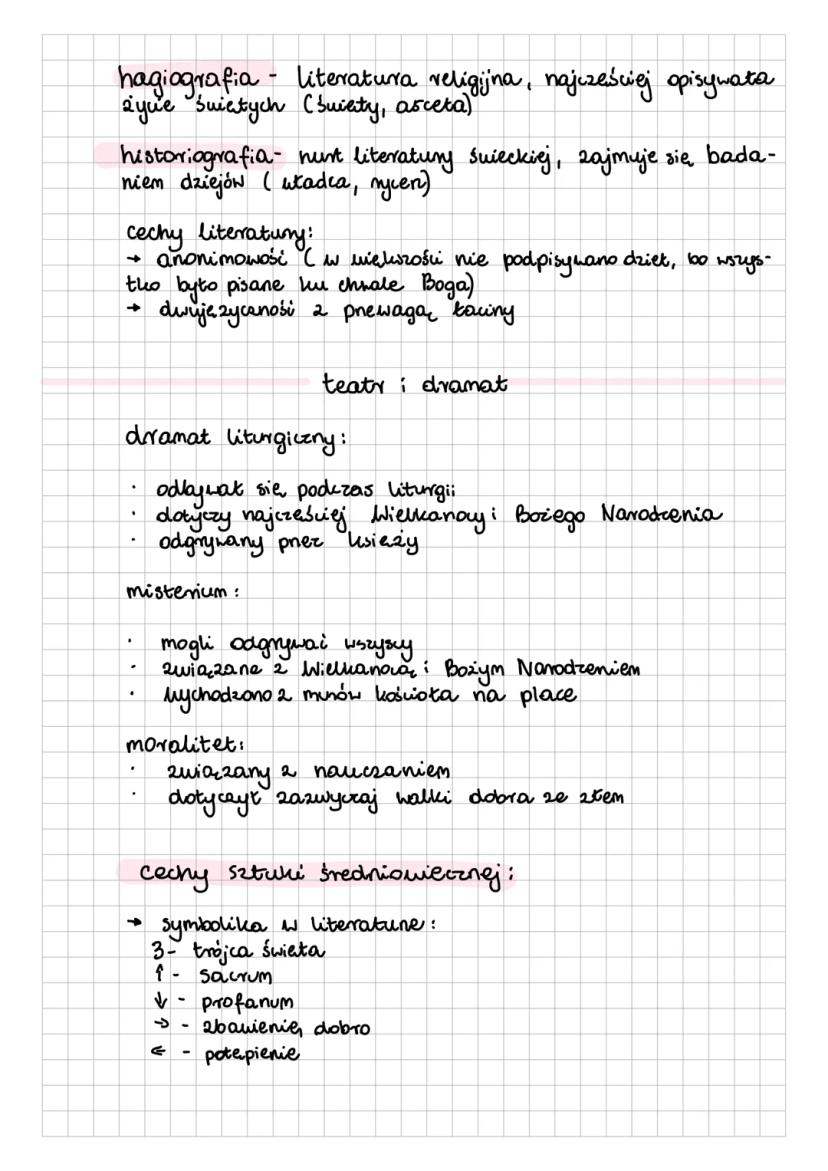 hagiografia - literatura religijna, najcześciej opisywała
życie świetych (święty, asceta)
historiografia- nurt literatury świeckiej, zajmuje się bada-
niem dziejów ( władca, rycerz)
cechy literatury:
→ anonimowość ( w większości nie podpisywano dzieł, bo wszys-
tko było pisane ku chwale Boga)
→ dwujęzyczność z przewagą łaciny
teatr i dramat
dramat liturgiczny:
· odbywał się podczas liturgii
· dotyczy najcześciej Wielkanocy i Bożego Narodzenia
· odgrywany przez księży
misterium:
· mogli odgrywać wszyscy
· związane z Wielkanocą i Bożym Narodzeniem
· wychodzono z murów kościoła na place
moralitet:
· związany z nauczaniem
· dotyczył zazwyczaj walki dobra ze złem
cechy sztuki średniowiecznej:
→ symbolika w literaturze:
3- trójca święta
↑ - sacrum
↓ - profanum
→ - zbawienie, dobro
← - potępienie